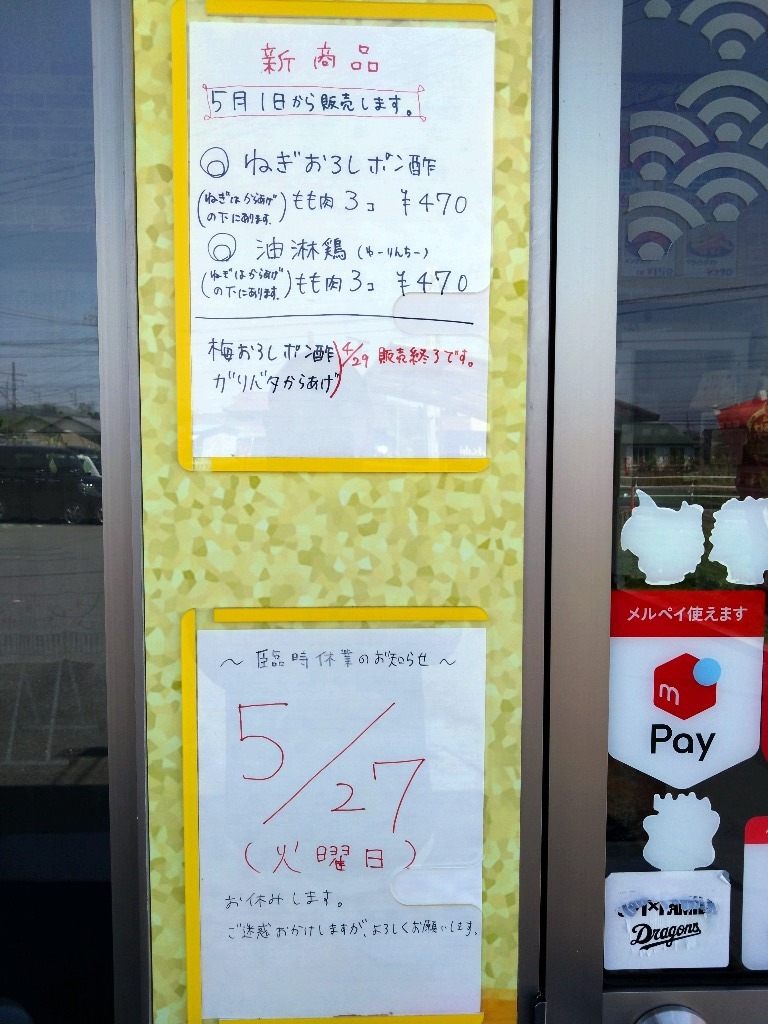 新商品
5月1日から販売します。
◎ ねぎおろしポン酢
(ねぎはからあげの下にあります。) もも肉 3コ ¥470
◎ 油淋鶏 (ゆーりんちー)
(ねぎはからあげの下にあります。) もも肉 3コ ¥470
梅おろしポン酢
ガリバタからあげ
4/29 販売終了です。
〜 臨時休業のお知らせ 〜
5/27
(火曜日)
お休みします。
ご迷惑おかけしますが、よろしくお願いします。
メルペイ使えます
m
Pay
Dragons